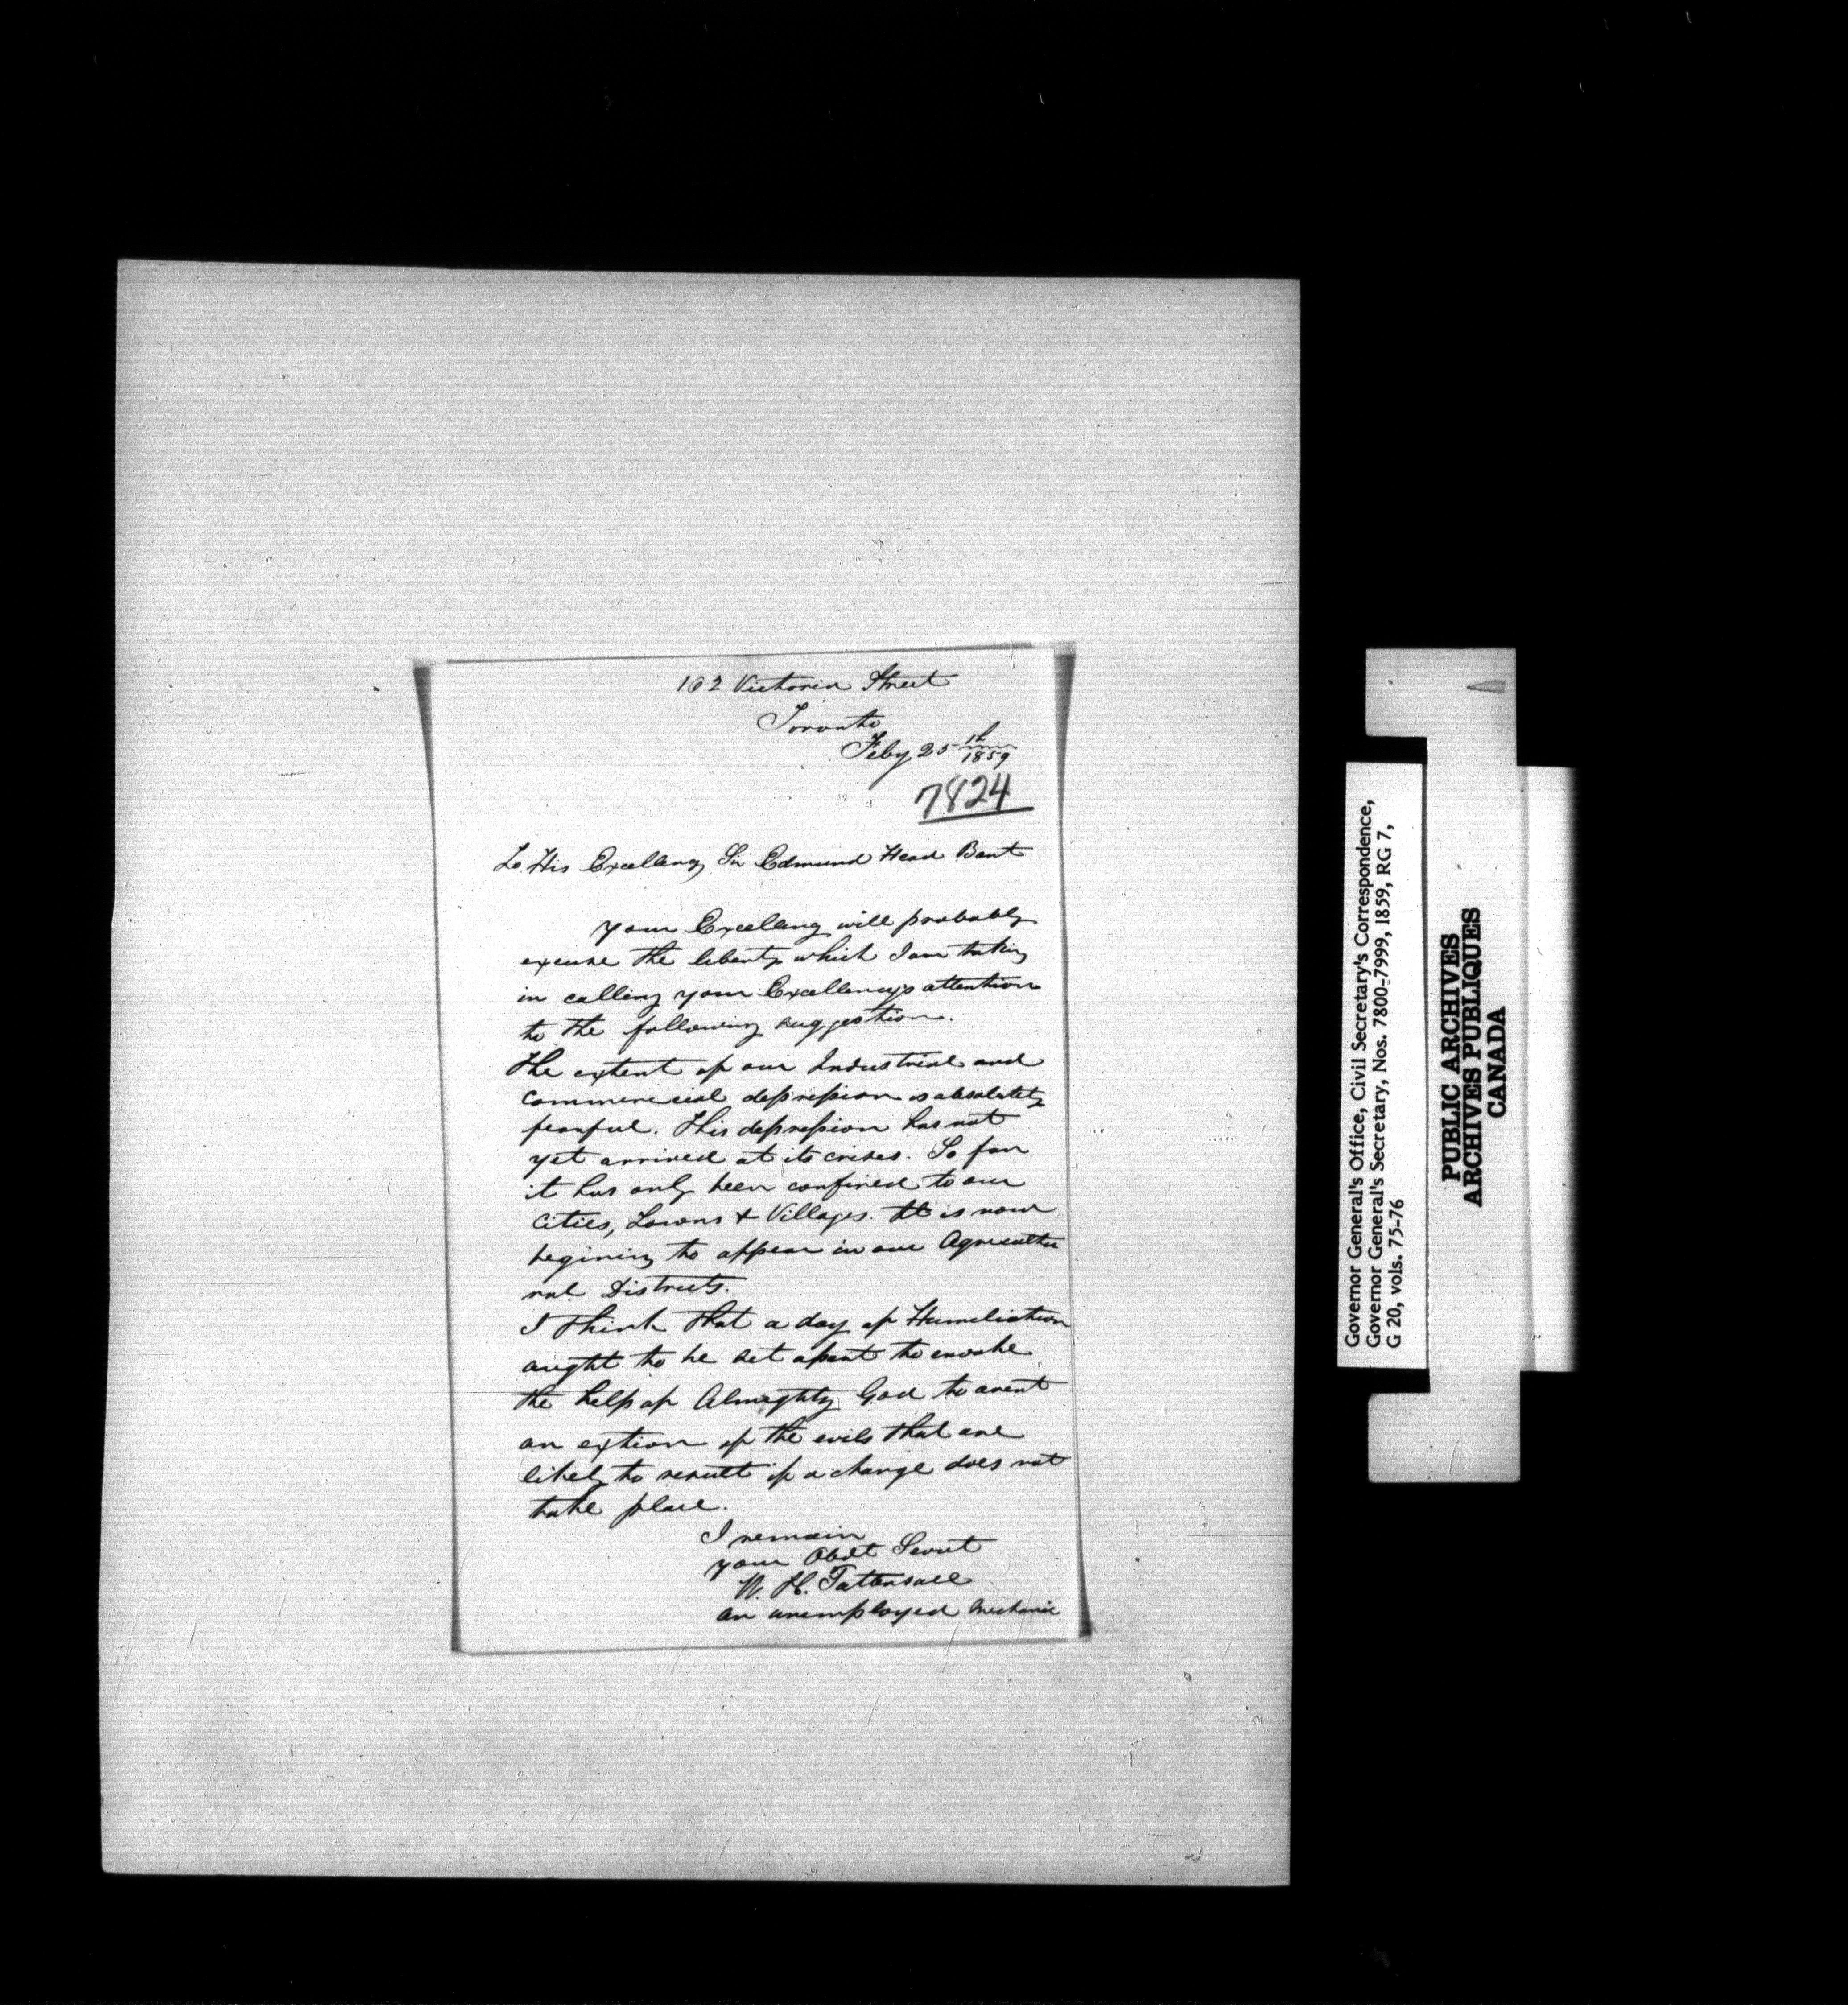 162 Victoria Street
Toronto
Feby 25th 1859
7824
To His Excellency Sir Edmund Head Bart
Your Excellency will probably
excuse the liberty which I am taking
in calling your Excellencys attention
to the following suggestion.
The extent of our Industrial and
Commericial depression is absolutely
fearful. This depression has not
yet arrived at its crises. So far
it has only been confined to our
Cities, Towns & Villages. It is now
begining to appear in our Agricultu
ral Districts.
I think that a day of Humiliation
aught to be set apart to envoke
the help of Almighty God to avert
an extion of the evils that are
likely to result if a change does not
take place.
I remain
your Obdt Servt
W. H. Tattersall
an unemployed Mechanic
Governor General's Office, Civil Secretary's Correspondence,
Governor General's Secretary, Nos. 7800-7999, 1859, RG 7,
G 20, vols. 75-76
PUBLIC ARCHIVES
ARCHIVES PUBLIQUES
CANADA